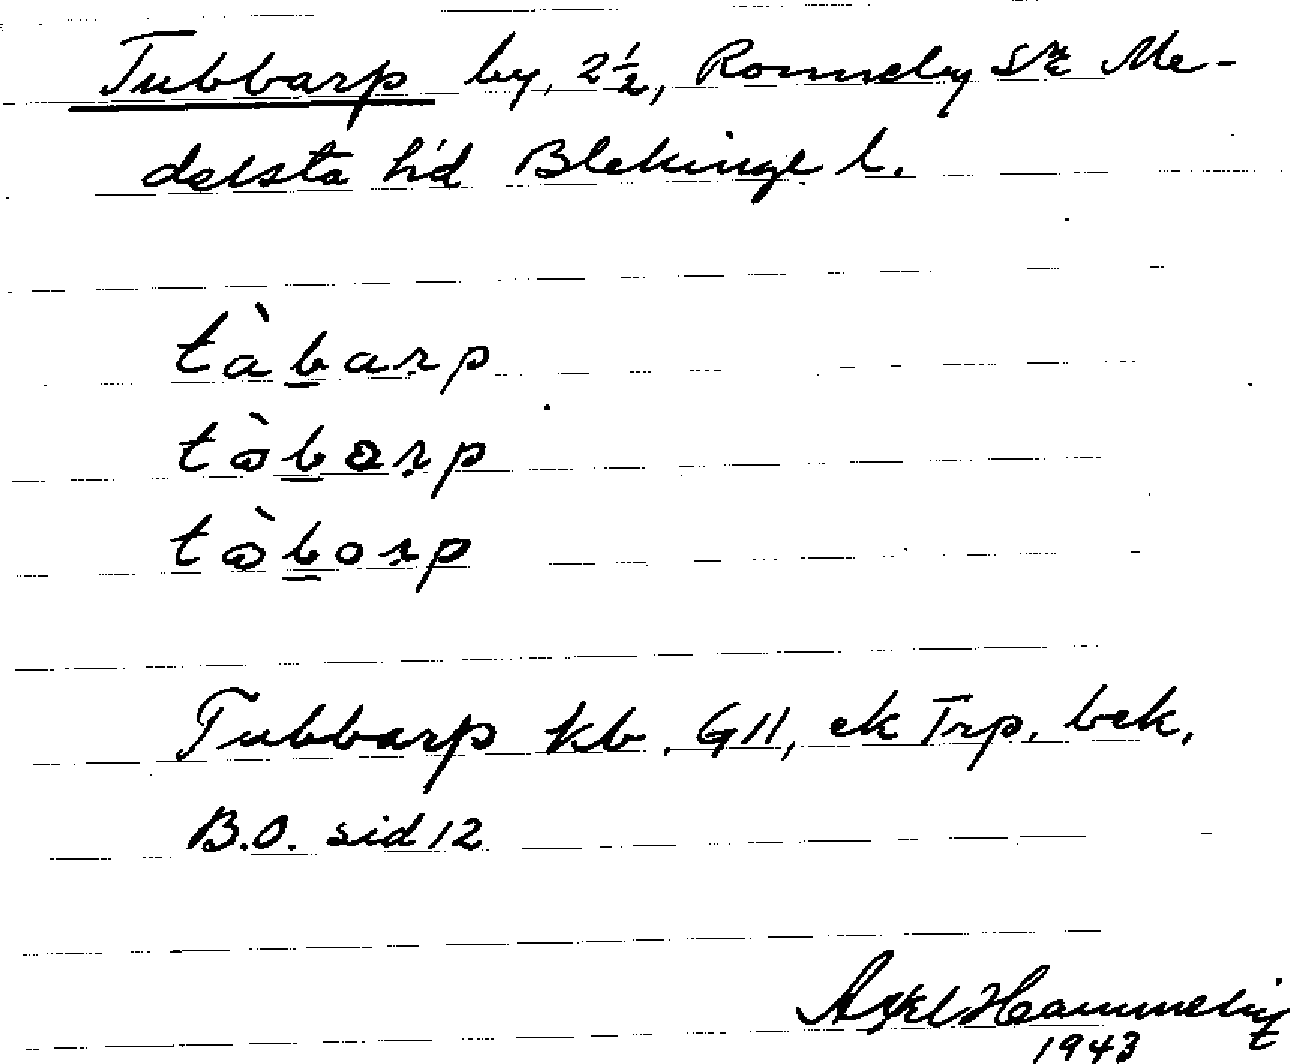 Tubbarp by, 2½, Ronneby sn Me-
delsta h'd Blekinge l.
tàbarp
tòbarp
tòborp
Tubbarp kb. GII, ek Trp. bek,
B.O. sid 12
Axel
1943